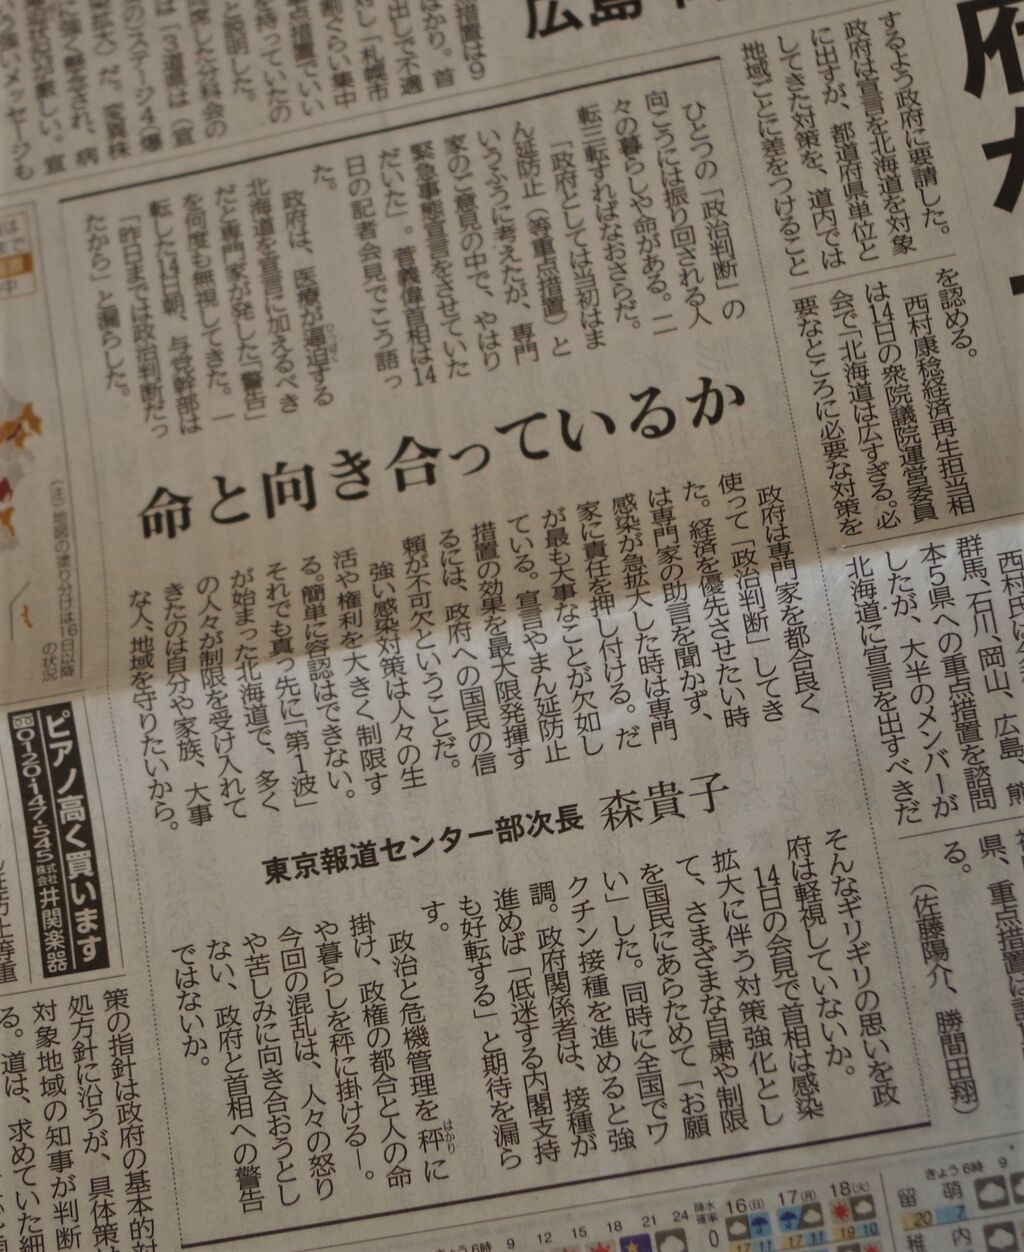 広島
府が
するよう政府に要請した。
政府は宣言を北海道を対象
に出すが、都道府県単位と
してきた対策を、道内では
地域ごとに差をつけること
を認める。
西村康稔経済再生担当相
は14日の衆院議院運営委員
会で「北海道は広すぎる。必
要なところに必要な対策を
群馬、石川、岡山、広島、熊
本5県への重点措置を諮問
したが、大半のメンバーが
北海道に宣言を出すべきだ
県、重点措置は
る。
(佐藤陽介、勝間田翔)
措置は9
ばかり。首
出しで不適
対し「札幌市
ぐらい集中
点措置でいい
を持っていたの
と説明した。
席した分科会の
「3道県は(宣
のステージ4(爆
大)だ。変異株
に強く懸念され、病
が厳しい。宣
強いメッセージも
ひとつの「政治判断」の
向こうには振り回される人
々の暮らしや命がある。二
転三転すればなおさらだ。
「政府としては当初はま
ん延防止(等重点措置)と
いうふうに考えたが、専門
家のご意見の中で、やはり
緊急事態宣言をさせていた
だいた」。菅義偉首相は14
日の記者会見でこう語っ
た。
政府は、医療が逼迫(ひっぱく)する
北海道を宣言に加えるべき
だと専門家が発した「警告」
を何度も無視してきた。一
転した14日朝、与党幹部は
「昨日までは政治判断だっ
たから」と漏らした。
命と向き合っているか
政府は専門家を都合良く
使って「政治判断」してき
た。経済を優先させたい時
は専門家の助言を聞かず、
感染が急拡大した時は専門
家に責任を押し付ける。だ
が最も大事なことが欠如し
ている。宣言やまん延防止
措置の効果を最大限発揮す
るには、政府への国民の信
頼が不可欠ということだ。
強い感染対策は人々の生
活や権利を大きく制限す
る。簡単に容認はできない。
それでも真っ先に「第1波」
が始まった北海道で、多く
の人々が制限を受け入れて
きたのは自分や家族、大事
な人、地域を守りたいから。
東京報道センター部次長 森貴子
そんなギリギリの思いを政
府は軽視していないか。
14日の会見で首相は感染
拡大に伴う対策強化とし
て、さまざまな自粛や制限
を国民にあらためて「お願
い」した。同時に全国でワ
クチン接種を進めると強
調。政府関係者は、接種が
進めば「低迷する内閣支持
も好転する」と期待を漏ら
す。
政治と危機管理を秤(はかり)に
掛け、政権の都合と人の命
や暮らしを秤に掛ける―。
今回の混乱は、人々の怒り
や苦しみに向き合おうとし
ない、政府と首相への警告
ではないか。
(注)地図の塗り分けは16日以降
の状況
ピアノ高く買います
0120147・545 株式会社 井関楽器
策の指針は政府の基本的対
処方針に沿うが、具体策は
対象地域の知事が判断
る。道は、求めていた細
きょう6時 9 12 15 18 21 24 降水確率 16(日) 17(月) 18(火)
0 17 11 17 11 19 10
きょう6時 9
留萌 20 7
稚内